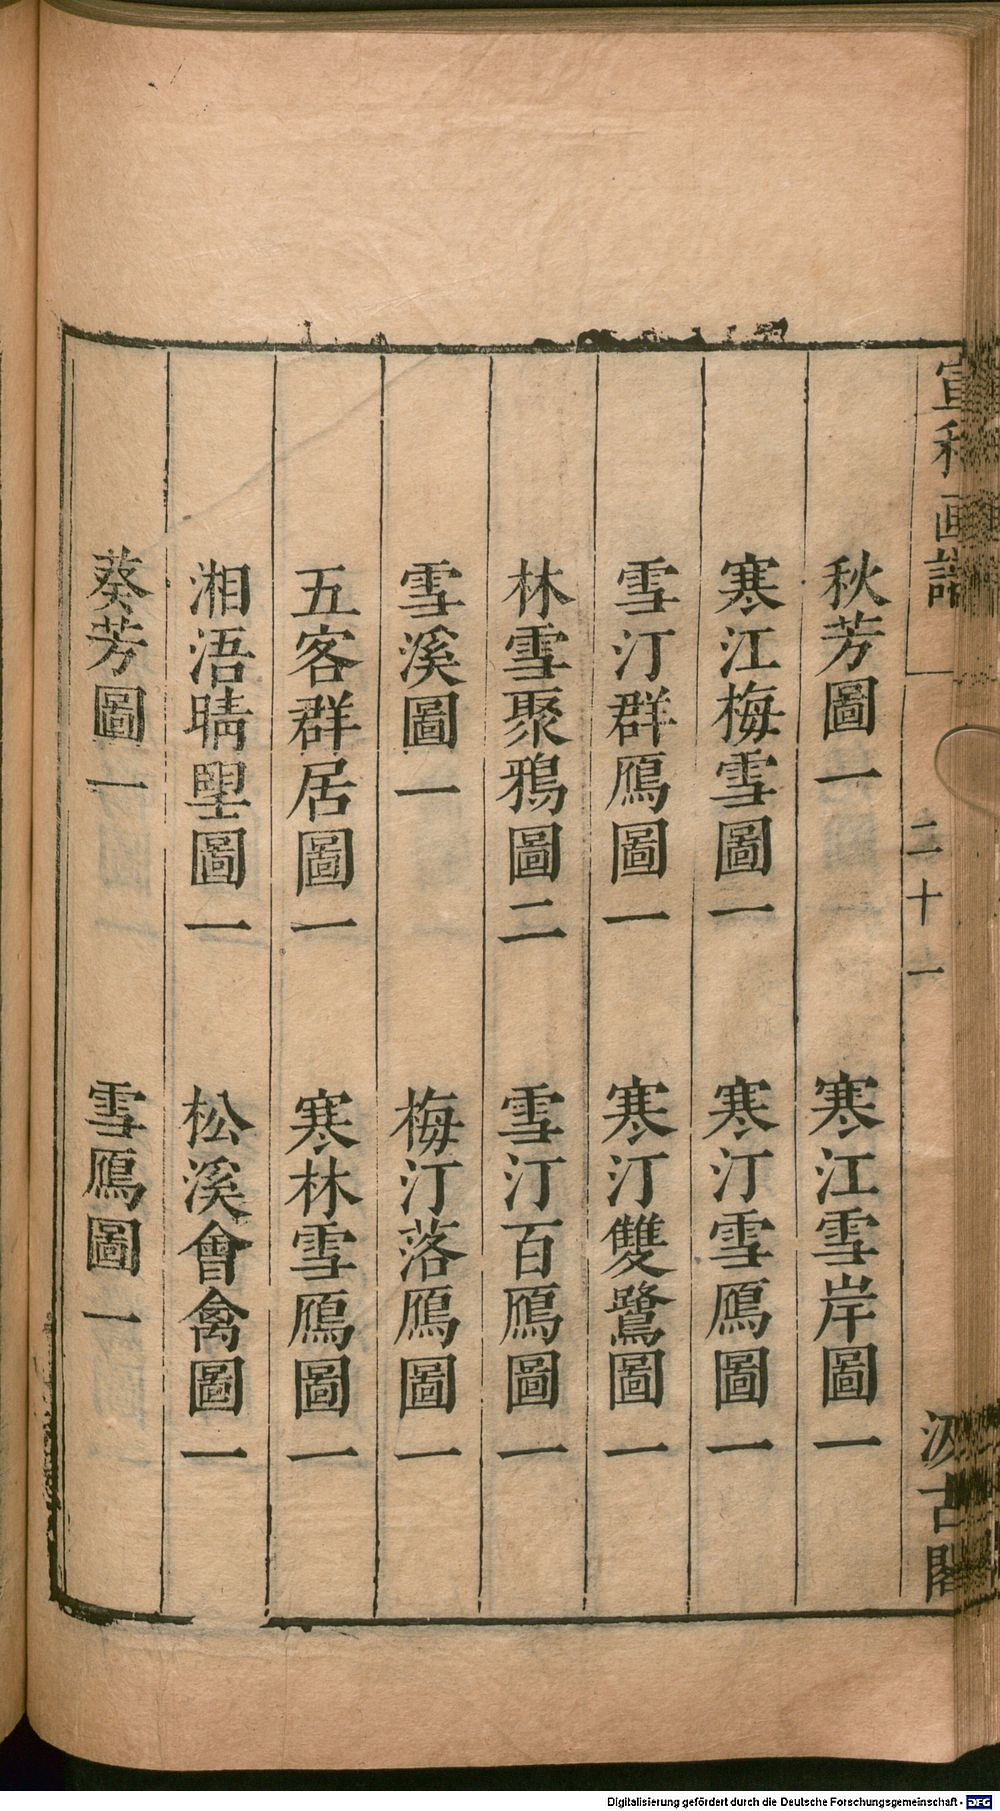 宣和画譜
二十一
汲古閣
秋芳圖一 寒江雪岸圖一
寒江梅雪圖一 寒汀雪鴈圖一
雪汀群鴈圖一 寒汀雙鷺圖一
林雪聚鴉圖二 雪汀百鴈圖一
雪溪圖一 梅汀落鴈圖一
五客群居圖一 寒林雪鴈圖一
湘浯晴望圖一 松溪會禽圖一
葵芳圖一 雪鴈圖一
Digitalisierung gefördert durch die Deutsche Forschungsgemeinschaft - DFG